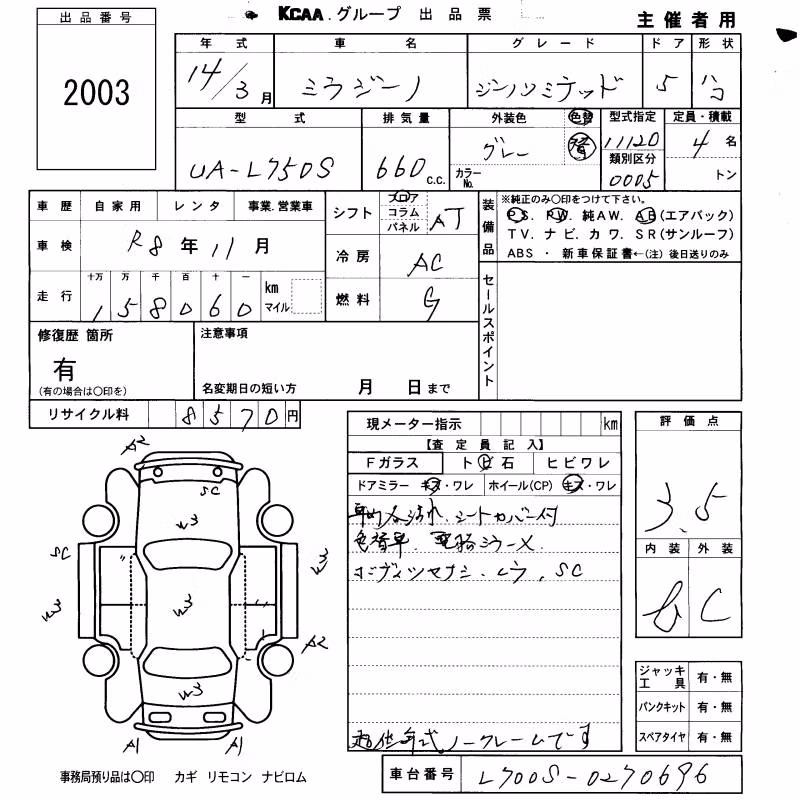 KCAA.グループ 出品票
主催者用
出品番号
2003
年式 車名 グレード ドア 形状
14/3月 ミラジーノ ジーノリミテッド 5 ハコ
型式 排気量 外装色 色替 型式指定 定員・積載
UA-L750S 660 c.c. グレー 替 11120 4名
カラーNo. 類別区分 0005 トン
車歴 自家用 レンタ 事業.営業車
車検 R8年11月
走行 十万 万 千 百 十 一 km マイル
158060
シフト フロア コラム パネル AT
冷房 AC
燃料 G
装備品
※純正のみ○印をつけて下さい。
P S. P W. 純AW. A B(エアバック)
T V. ナ ビ. カ ワ. S R(サンルーフ)
ABS ・ 新車保証書←(注) 後日送りのみ
セールスポイント
修復歴 箇所
有
(有の場合は○印を)
注意事項
名変期日の短い方 月 日まで
リサイクル料 8570円
現メーター指示 km
【査定員記入】
Fガラス ト ビ 石 ヒビワレ
ドアミラー キズ・ワレ ホイール(CP) キズ・ワレ
シートカバー付
色替車.
ボディツヤナシ. SC
年式ノークレームです
評価点
3.5
内装 外装
C
ジャッキ工具 有・無
パンクキット 有・無
スペアタイヤ 有・無
A2
SC
W3
SC
W3
W3
W3
A2
W3
A1
A1
事務局預り品は○印 カギ リモコン ナビロム
車台番号 L700S-0270696